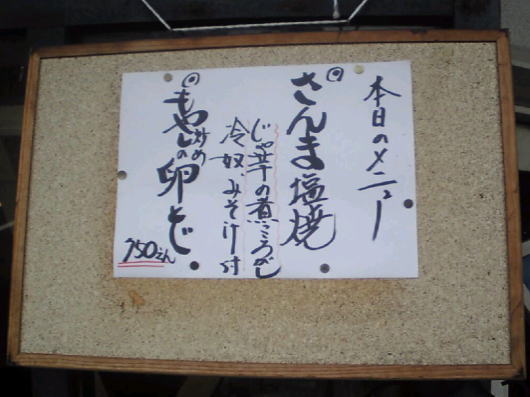 本日のメニュー
◉さんま塩焼
じゃが芋の煮ころがし
冷奴 みそ汁付
◉もやし炒めの卵とじ
750えん